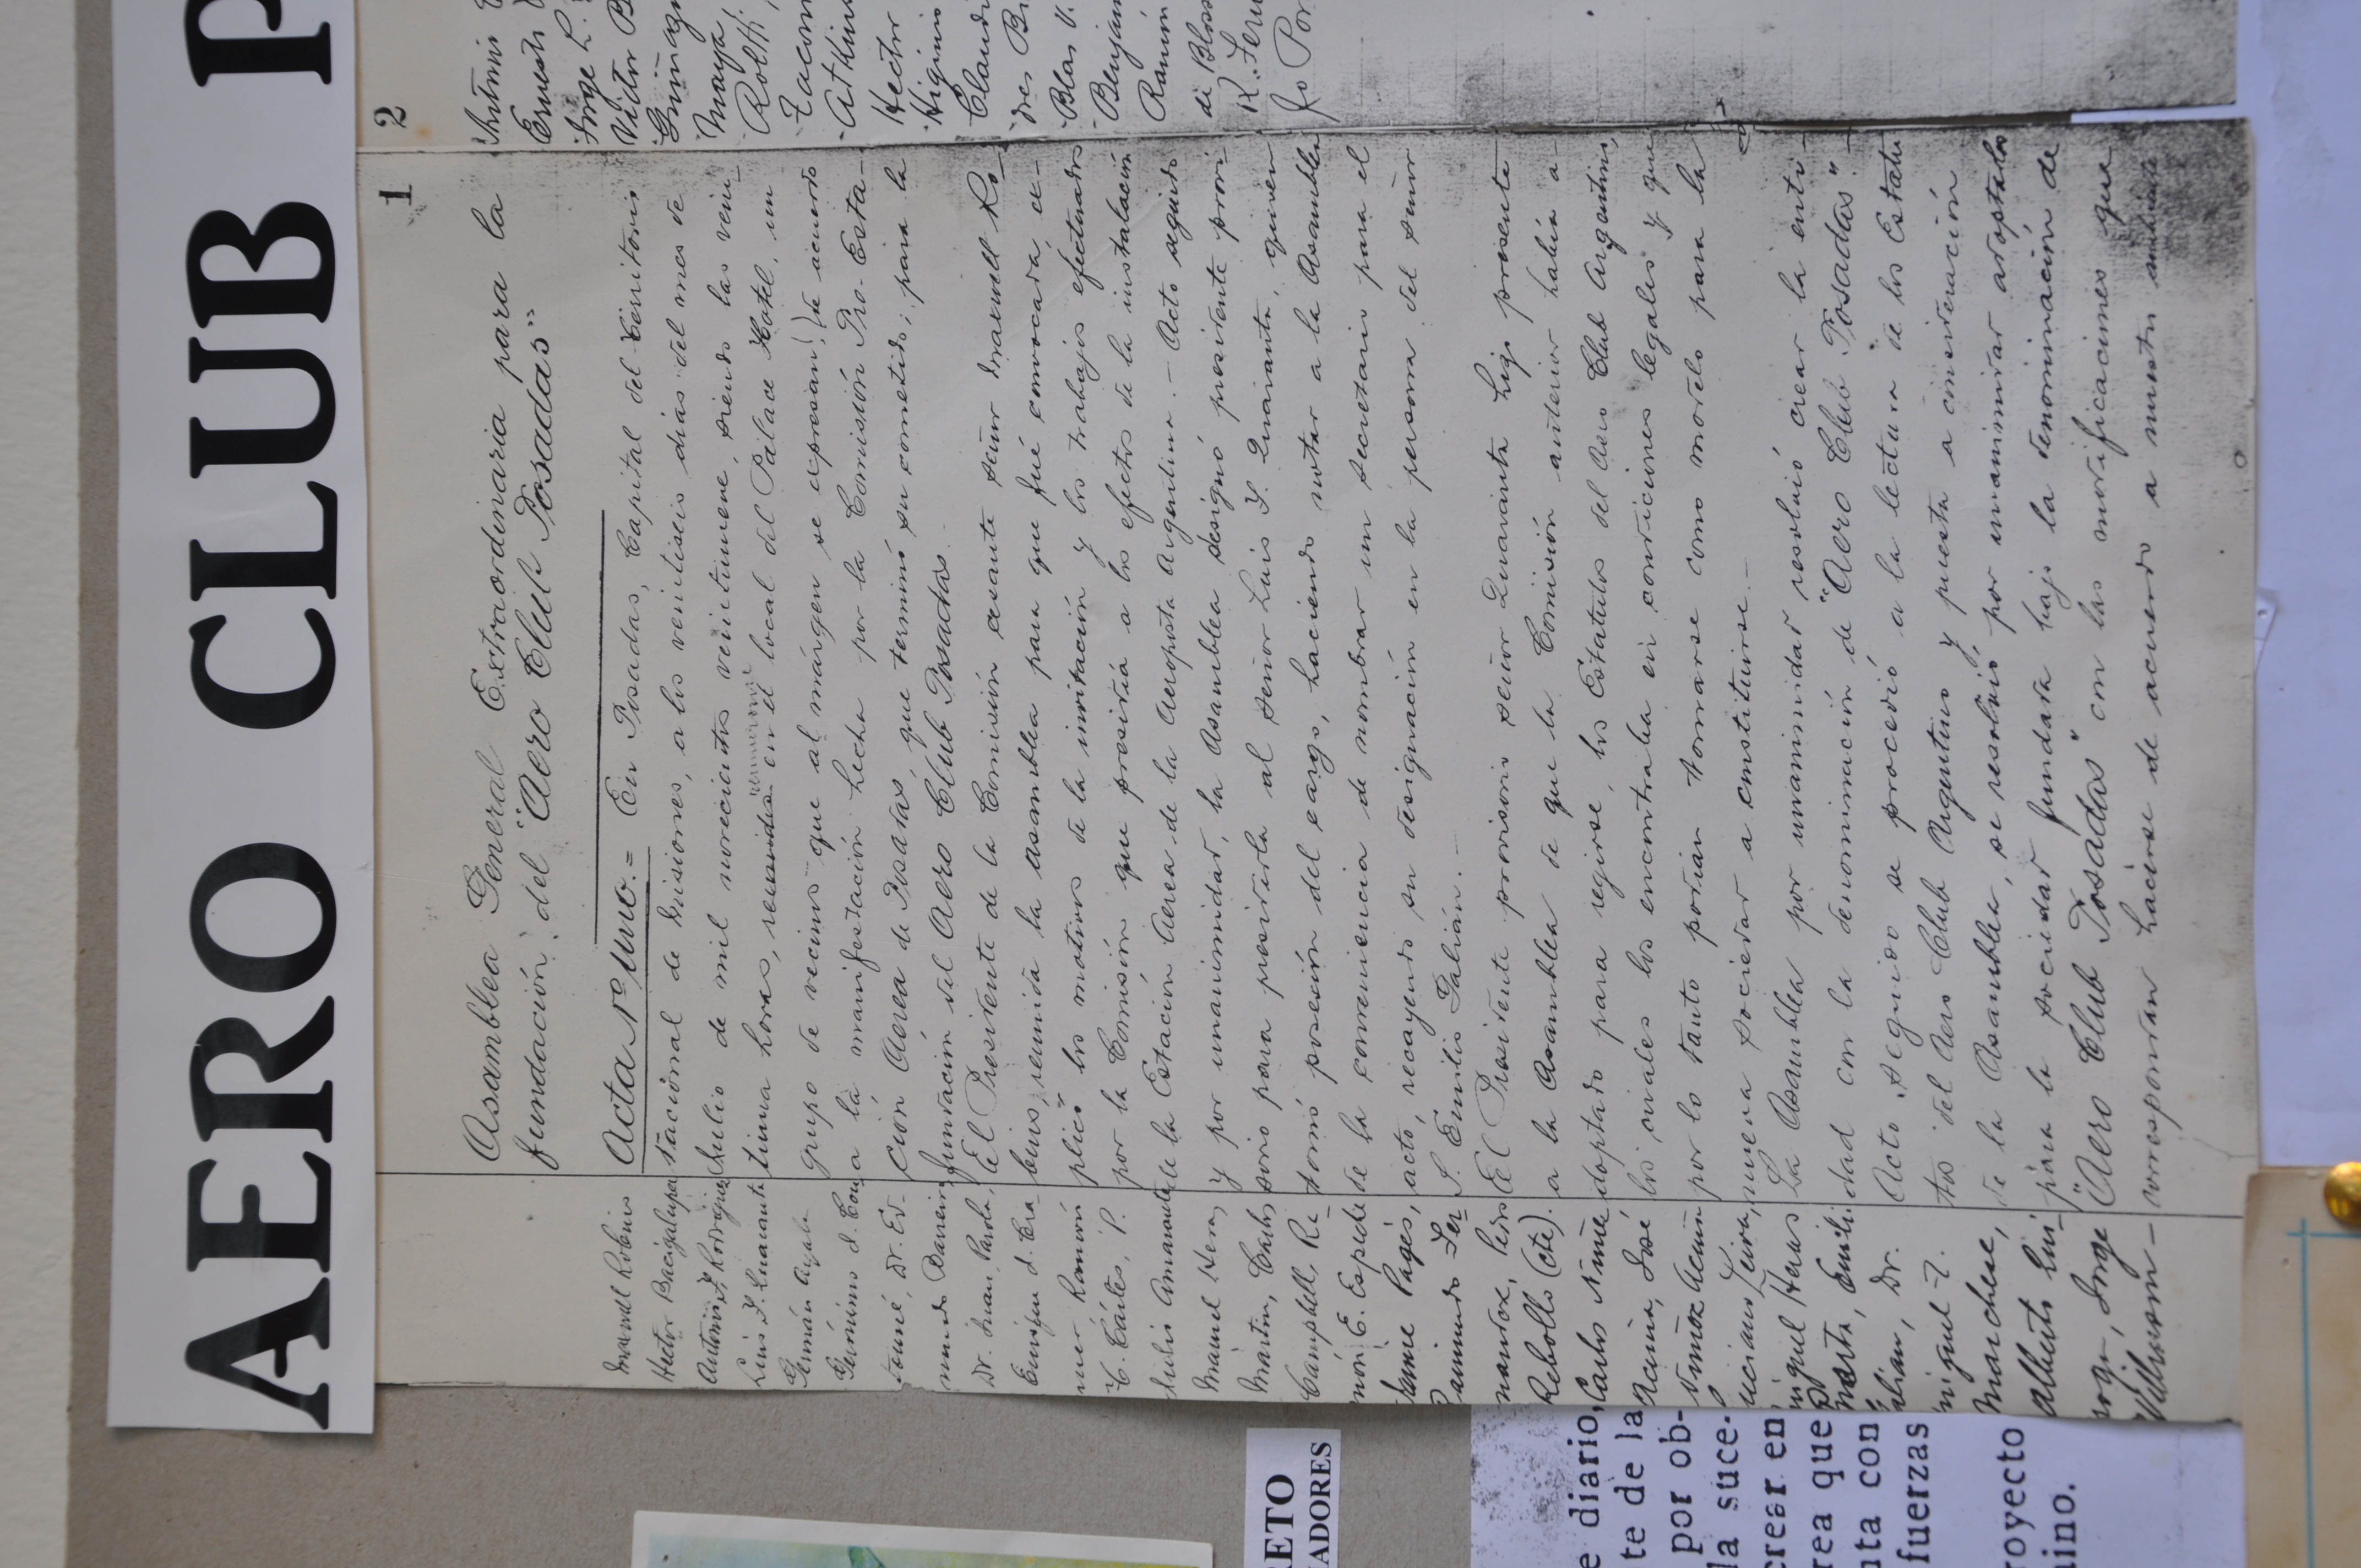 AERO CLUB P
1
Asamblea General Extraordinaria para la
fundación, del "Aero Club Posadas"
Acta Nº Uno. = En Posadas, Capital del Territorio
Nacional de Misiones, a los veintiseis dias del mes de
Julio de mil novecientos veintinueve, siendo las vein-
tiuna horas, en el local del Palace Hotel, un
grupo de vecinos que al márgen se expresan, de acuerdo
a la manifestación hecha por la Comisión Pro-Esta-
ción Aerea de Posadas, que terminó su cometido, para la
fundación del Aero Club Posadas.
El Presidente de la Comisión cesante señor Maxwell Ro-
bins, reunida la asamblea para que fué convocada, ex-
plicó los motivos de la invitación y los trabajos efectuados
por la Comisión que presidía a los efectos de la instalación
de la Estación Aerea de la Aeroposta Argentina. - Acto seguido
y por unanimidad, la Asamblea designó presidente provi-
sorio para presidirla al señor Luis F. Quaranta, quien
tomó posesión del cargo, haciendo notar a la Asamblea
de la conveniencia de nombrar un secretario para el
acto, recayendo su designación en la persona del señor
S. Emilio Galián. -
El Presidente provisorio señor Quaranta hizo presente
a la Asamblea de que la Comisión anterior había a-
doptado para regirse, los Estatutos del Aero Club Argentino,
los cuales los encontraba en condiciones legales y que
por lo tanto podrian tomarse como modelo para la
nueva sociedad a constituirse. -
La Asamblea por unanimidad resolvió crear la enti-
dad con la denominación de "Aero Club Posadas". -
Acto seguido se procedió a la lectura de los Estatu
tos del Aero Club Argentino y puesta a consideración
de la Asamblea, se resolvió, por unanimidad adoptarlos
para la sociedad fundada bajo la denominación de
"Aero Club Posadas" con las modificaciones que
correspondan hacerse de acuerdo a nuestro ambiente
Maxwell Robins
Hector Bacigalupe
Antonio F. Rodriguez
Luis F. Quaranta
Germán Ayala
Gerónimo J.
Dr. Ed-
mundo Barreiro
Dr. Juan
Enrique J.
Ramón
C. Cártes, P.
Julio Amarante
Manuel Hera,
Martin, Carlos
Campbell, Re-
món E. Espinde
Jaime Pagés,
Raimundo Fer
nandez, Pedro
Rebollo (Cte).
Carlos Núñe
Acuña, José
Acuña
uciano Leiva,
iguel Heras
Emili
alian, Dr.
Miguel F.
Marchese,
Alberto
Jorge
Villmson -
2
Antonio
Ernesto
Jorge L.
Victor B
Maya
Rolth
Hector
Higinio
Claudi
dres Br
Blas V.
Benjam
Ramón
di Bloss
R. Feru
fo Por
RETO
ADORES
e diario,
te de la
por ob-
la suce-
crear en
rea que
nta con
fuerzas
royecto
nino.